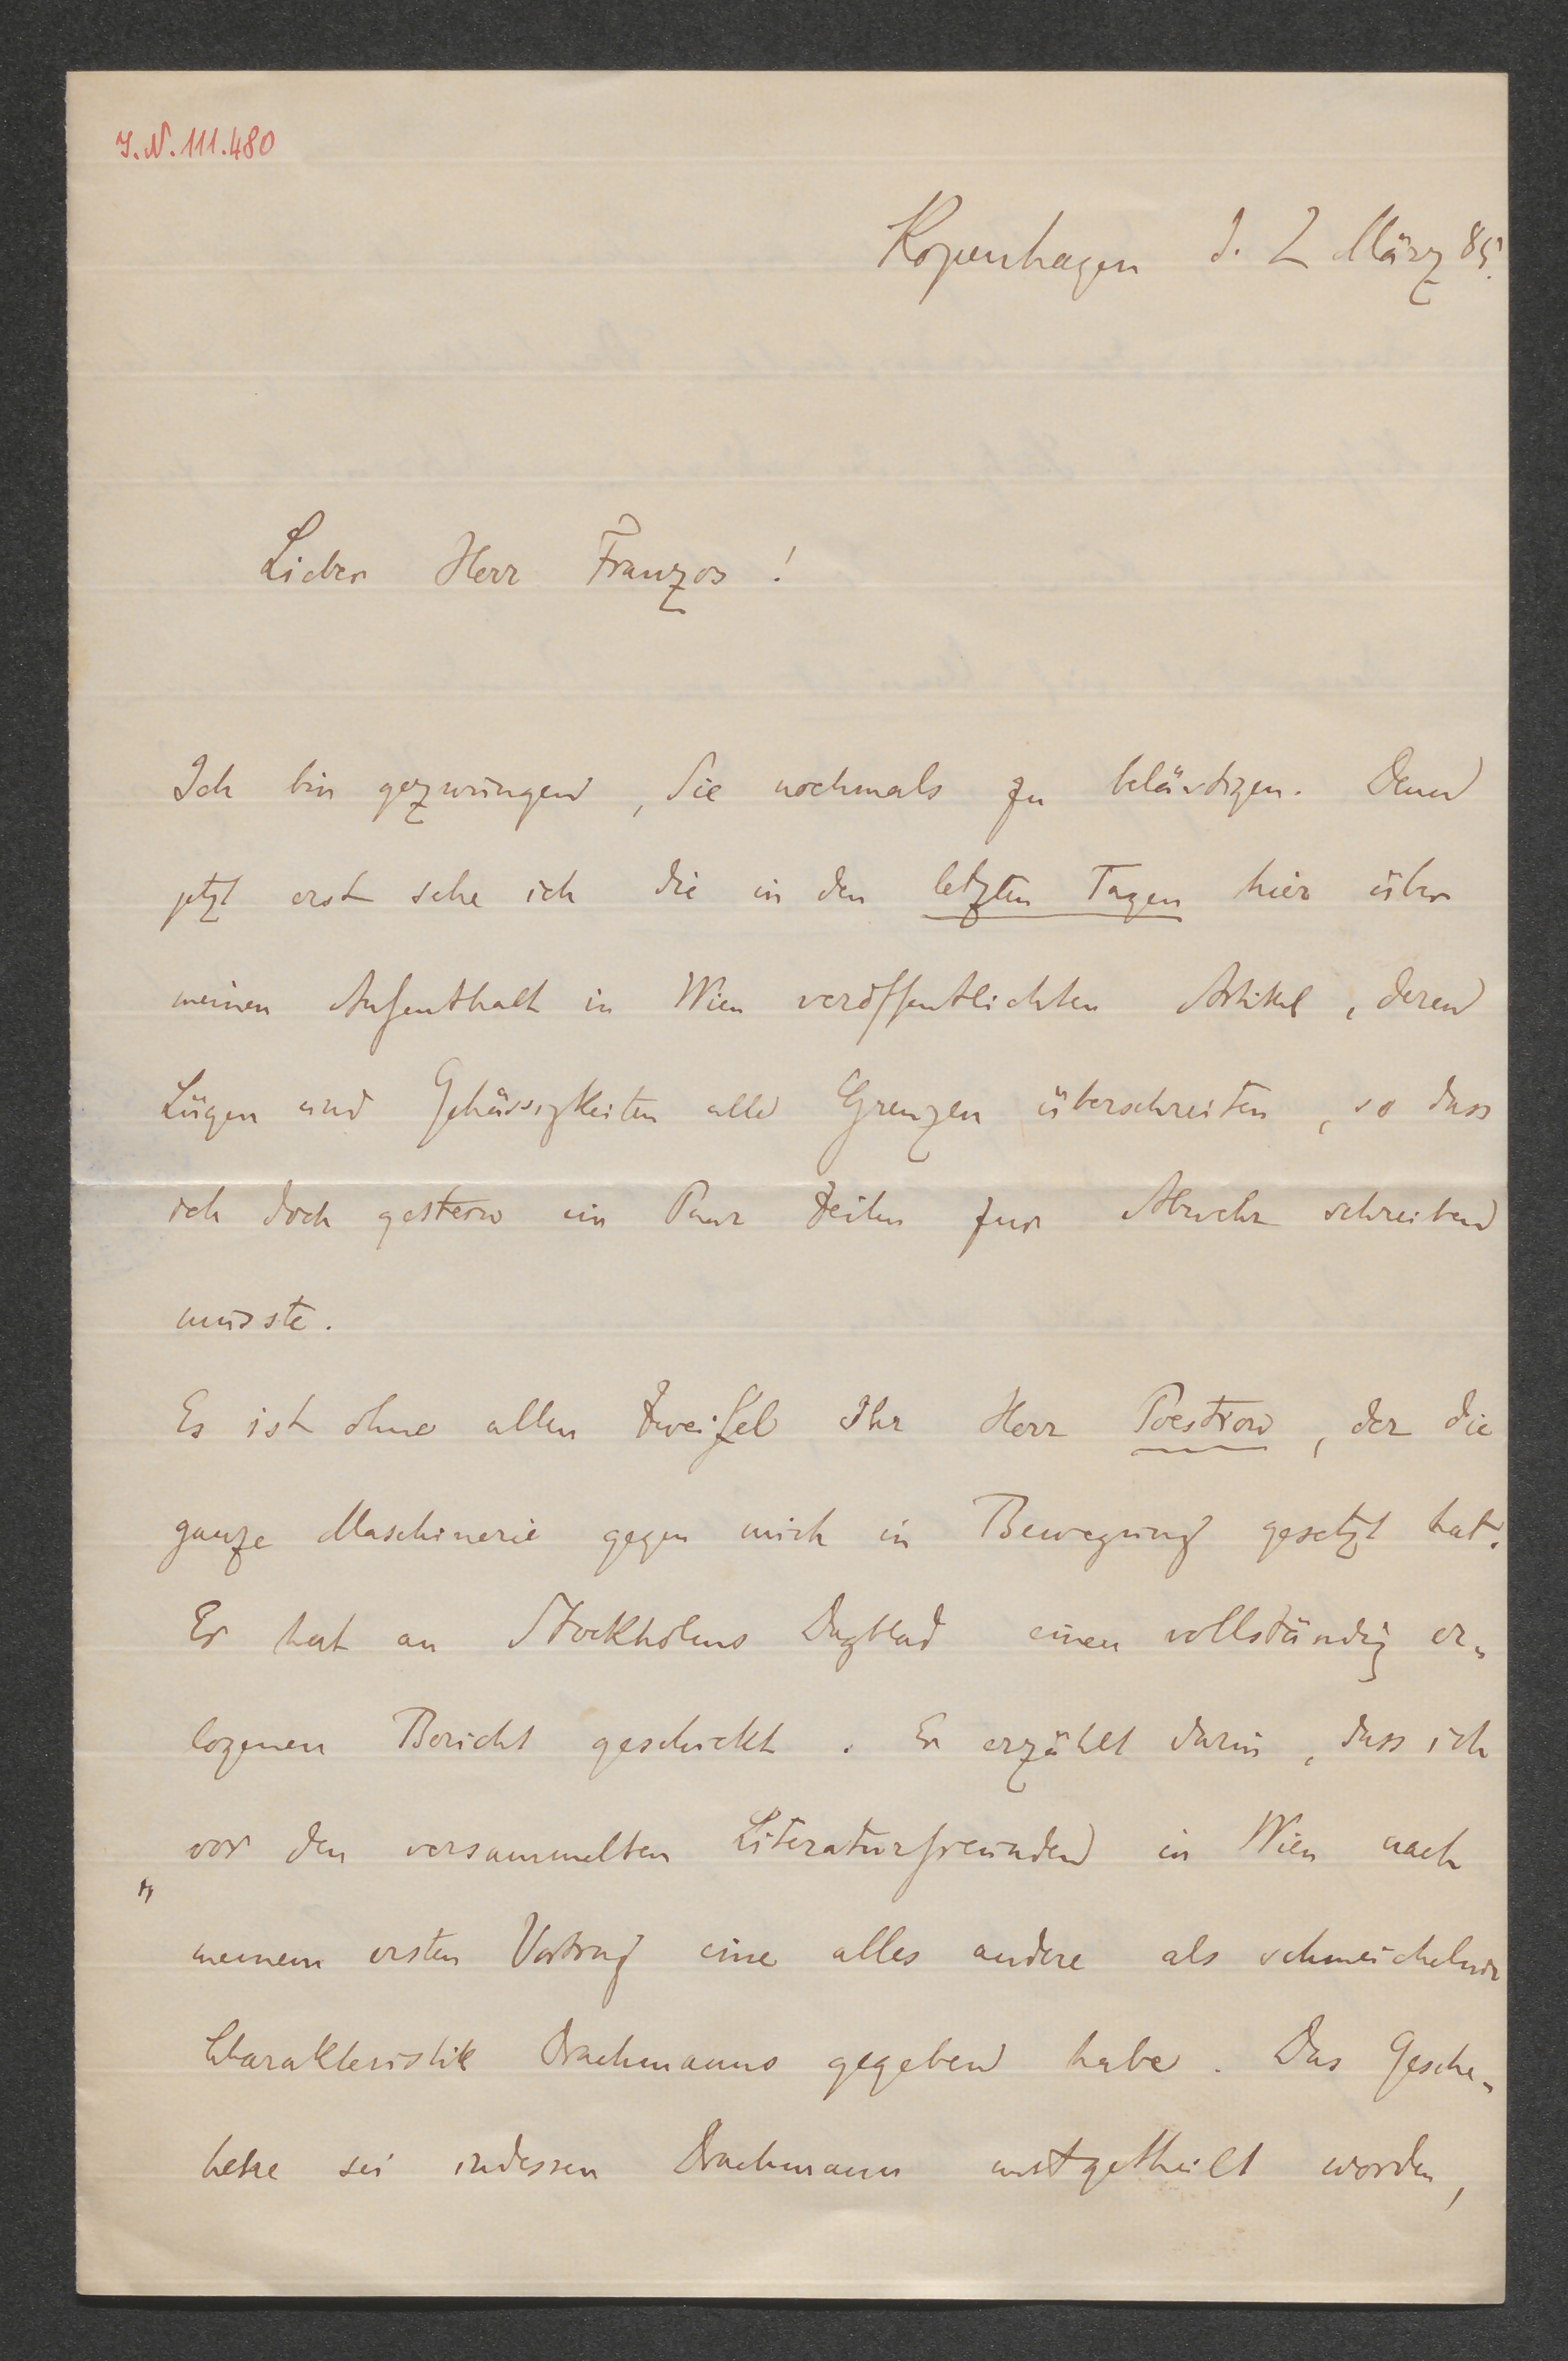 J.N. 111.480
Kopenhagen d. 2 März 85.
Lieber Herr Franzos!
Ich bin gezwungen, Sie nochmals zu belästigen. Denn
jetzt erst sehe ich die in den letzten Tagen hier über
meinen Aufenthalt in Wien veröffentlichten Artikel, deren
Lügen und Gehässigkeiten alle Grenzen überschreiten, so dass
ich doch gestern ein Paar Zeilen zur Abwehr schreiben
musste.
Es ist ohne allen Zweifel Ihr Herr Poestion, der die
ganze Maschinerie gegen mich in Bewegung gesetzt hat.
Er hat an Stockholms Dagblad einen vollständig er-
logenen Bericht geschickt. Er erzählt darin, dass ich
vor den versammelten Literaturfreunden in Wien nach
"
meinem ersten Vortrag eine alles andere als schmeichelnde
Charakteristik Drachmanns gegeben habe. Das Gesche-
hene sei indessen Drachmann mitgetheilt worden,